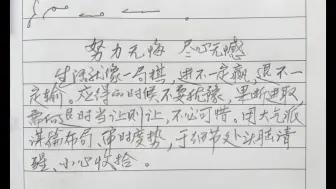 努力无悔 尽心无憾
生活就像一局棋，进不一定赢，退不一
定输。应得的时候不要犹豫，果断进取
需让是时当让则让，不必可惜。因大气派
谋篇布局、审时度势，于细节处头脑清
醒、小心收拾。